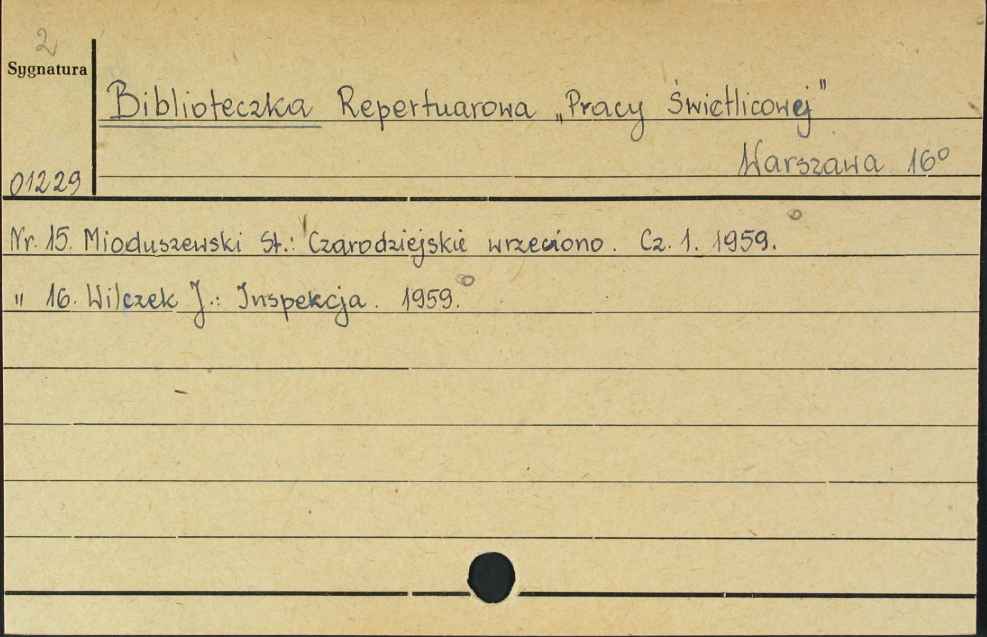 2
Sygnatura
Biblioteczka Repertuarowa „Pracy Świetlicowej"
Warszawa 16°
01229
Nr. 15. Mioduszewski St.: Czarodziejskie wrzeciono. Cz. 1. 1959.
" 16. Wilczek J.: Inspekcja. 1959.